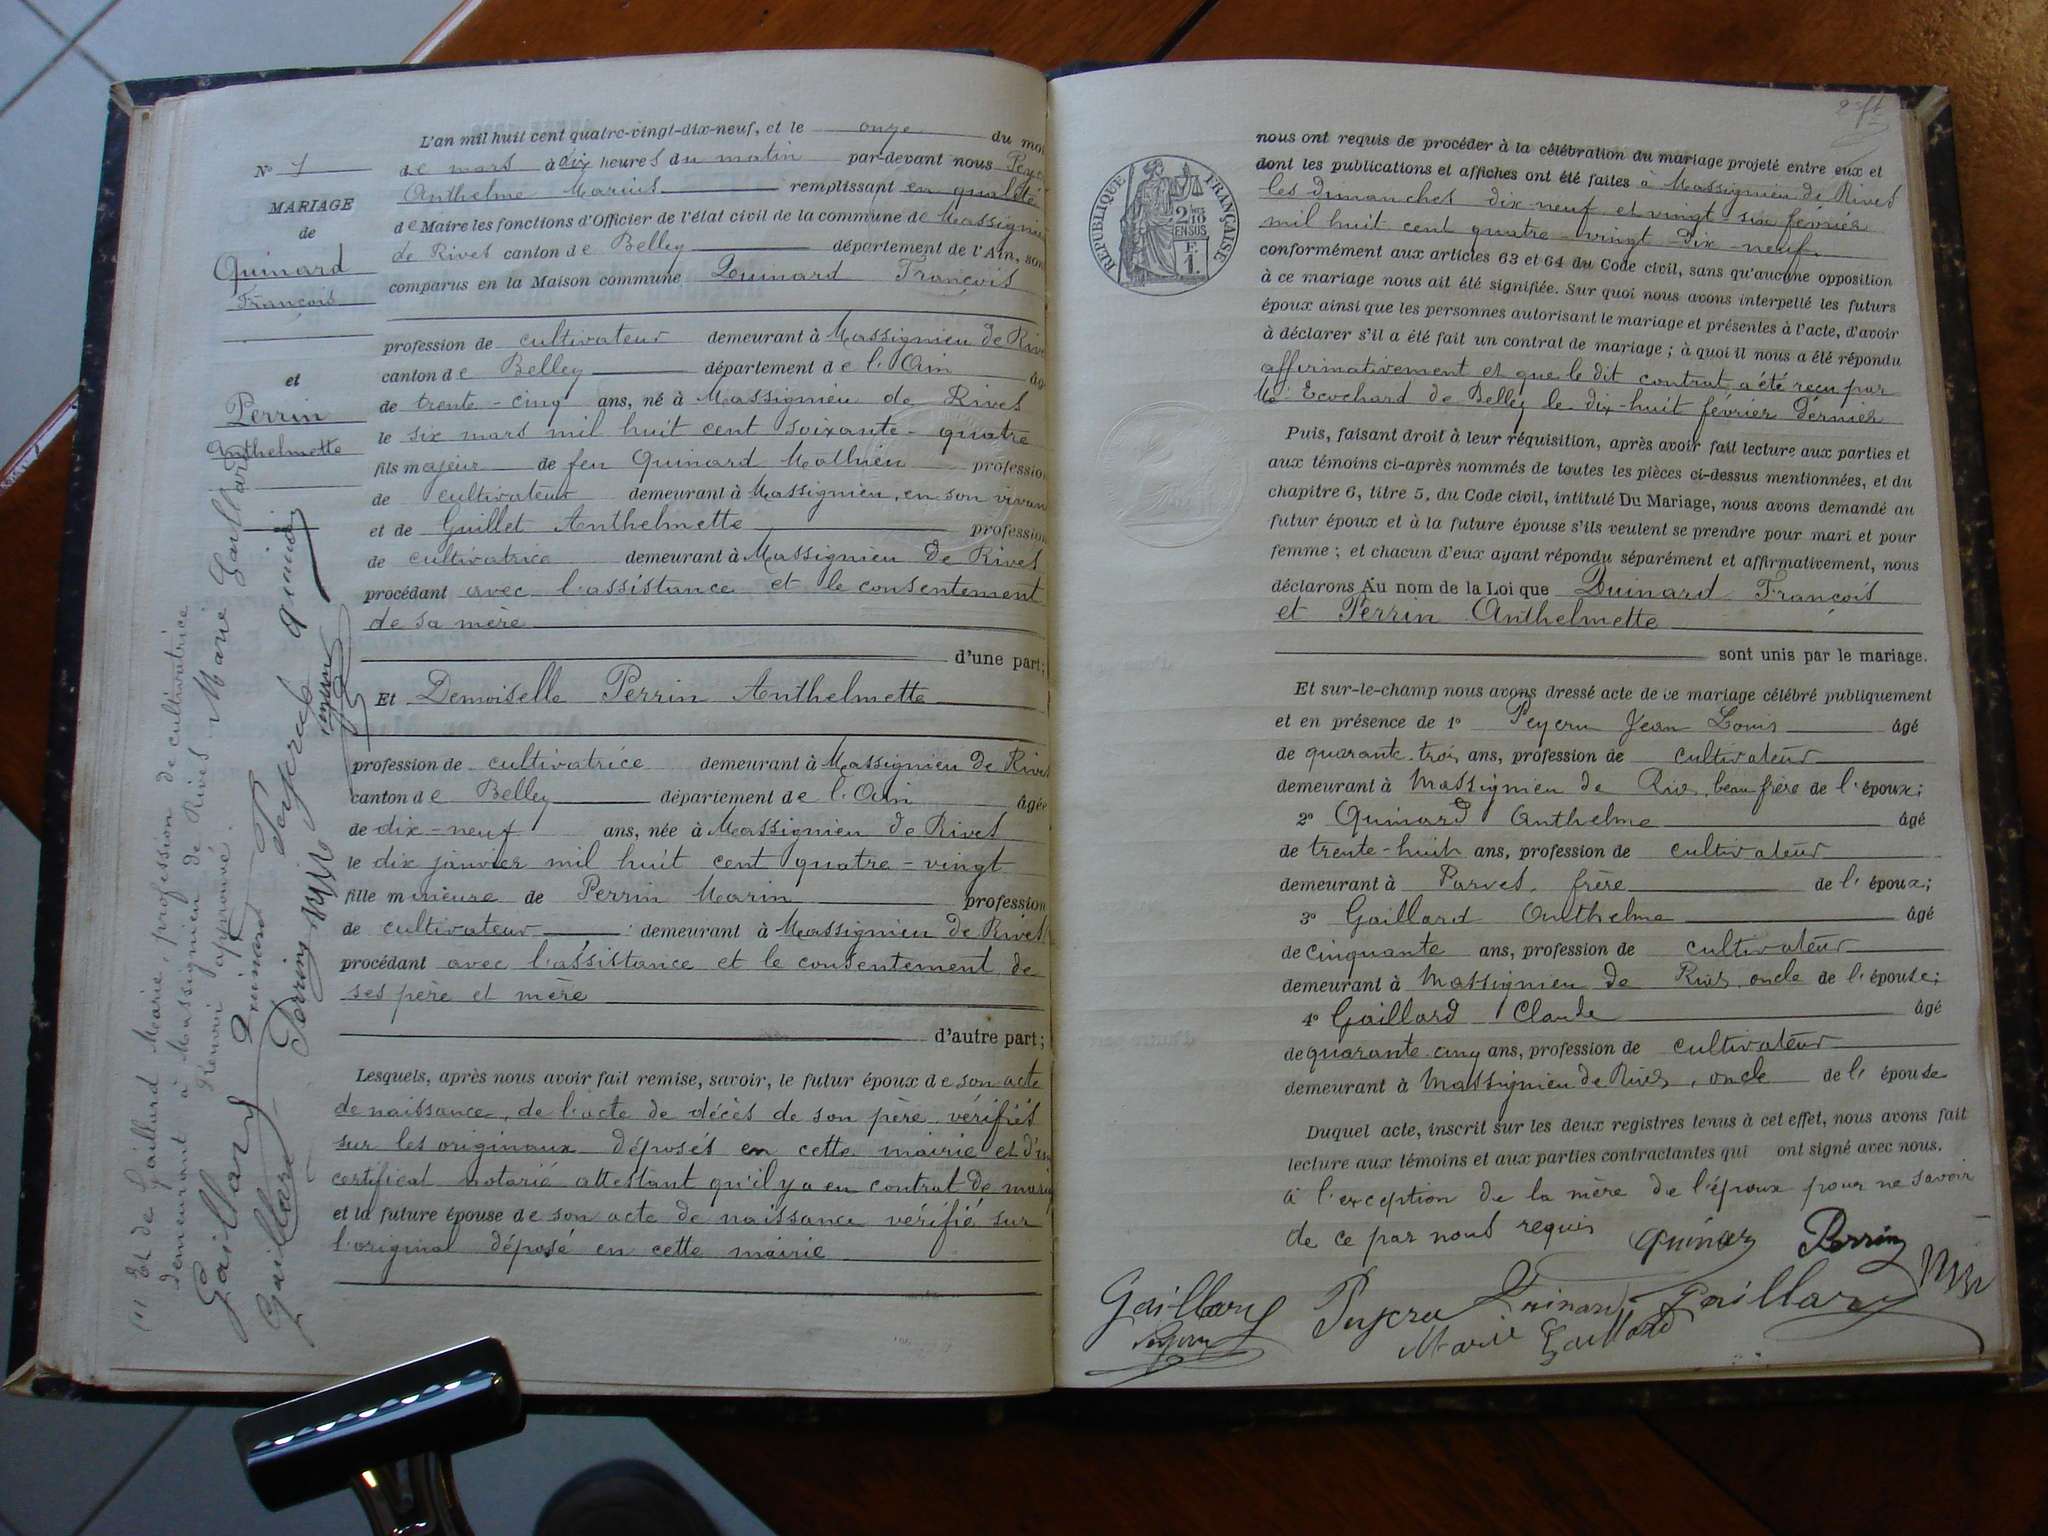 L'an mil huit cent quatre-vingt-dix-neuf, et le onze du moi
N° 1
de mars à dix heures du matin par-devant nous Peye
Anthelme Marius remplissant en qualité
MARIAGE
de
Quinard
François
et
Perrin
Anthelmette
de Maire les fonctions d'Officier de l'état civil de la commune de Massignieu
de Rives canton de Belley département de l'Ain, son
comparus en la Maison commune Quinard François
profession de cultivateur demeurant à Massignieu de Rives
canton de Belley département de l'Ain âg
de trente-cinq ans, né à Massignieu de Rives
le six mars mil huit cent soixante-quatre
fils majeur de feu Quinard Mathieu profession
de cultivateur demeurant à Massignieu, en son vivant
et de Guillet Anthelmette profession
de cultivatrice demeurant à Massignieu de Rives
procédant avec l'assistance et le consentement
de sa mère
d'une part;
Et Demoiselle Perrin Anthelmette
profession de cultivatrice demeurant à Massignieu de Rives
canton de Belley département de l'Ain âgée
de dix-neuf ans, née à Massignieu de Rives
le dix janvier mil huit cent quatre-vingt
fille mineure de Perrin Marin profession
de cultivateur demeurant à Massignieu de Rives
procédant avec l'assistance et le consentement de
ses père et mère
d'autre part;
Lesquels, après nous avoir fait remise, savoir, le futur époux de son acte
de naissance, de l'acte de décès de son père, vérifiés
sur les originaux déposés en cette mairie et d'un
certificat notarié attestant qu'il y a eu contrat de mariage
et la future épouse de son acte de naissance vérifié sur
l'original déposé en cette mairie
(1) Et de Gaillard Marie, profession de cultivatrice
demeurant à Massignieu de Rives Marie Gaillard
Renvoi approuvé.
Gaillard Quinard Peycru Quinard
Gaillard Perrin
RÉPUBLIQUE FRANÇAISE
2/10
EN SUS
F.
1.
nous ont requis de procéder à la célébration du mariage projeté entre eux et
dont les publications et affiches ont été faites à Massignieu de Rives
les dimanches dix-neuf et vingt-six février
mil huit cent quatre-vingt-dix-neuf.
conformément aux articles 63 et 64 du Code civil, sans qu'aucune opposition
à ce mariage nous ait été signifiée. Sur quoi nous avons interpellé les futurs
époux ainsi que les personnes autorisant le mariage et présentes à l'acte, d'avoir
à déclarer s'il a été fait un contrat de mariage; à quoi il nous a été répondu
affirmativement et que le dit contrat a été reçu par
Me Ecochard de Belley le dix-huit février dernier
Puis, faisant droit à leur réquisition, après avoir fait lecture aux parties et
aux témoins ci-après nommés de toutes les pièces ci-dessus mentionnées, et du
chapitre 6, titre 5, du Code civil, intitulé Du Mariage, nous avons demandé au
futur époux et à la future épouse s'ils veulent se prendre pour mari et pour
femme; et chacun d'eux ayant répondu séparément et affirmativement, nous
déclarons Au nom de la Loi que Quinard François
et Perrin Anthelmette
sont unis par le mariage.
Et sur-le-champ nous avons dressé acte de ce mariage célébré publiquement
et en présence de 1° Peycru Jean Louis âgé
de quarante-trois ans, profession de cultivateur
demeurant à Massignieu de Rives, beau frère de l'époux;
2° Quinard Anthelme âgé
de trente-huit ans, profession de cultivateur
demeurant à Parves, frère de l'époux;
3° Gaillard Anthelme âgé
de cinquante ans, profession de cultivateur
demeurant à Massignieu de Rives, oncle de l'épouse;
4° Gaillard Claude âgé
de quarante-cinq ans, profession de cultivateur
demeurant à Massignieu de Rives, oncle de l'épouse
Duquel acte, inscrit sur les deux registres tenus à cet effet, nous avons fait
lecture aux témoins et aux parties contractantes qui ont signé avec nous.
à l'exception de la mère de l'époux pour ne savoir
de ce par nous requis Quinard Perrin
Gaillard Peycru Quinard Gaillard
Marie Gaillard